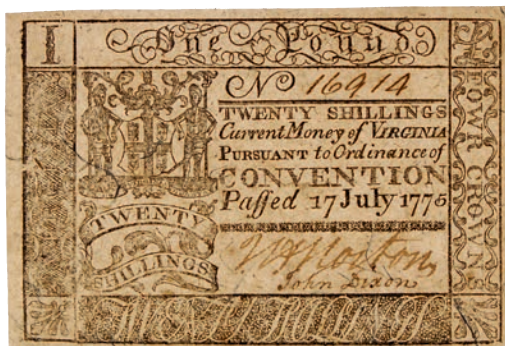 I
One Pound
No 16914
TWENTY SHILLINGS
Current Money of VIRGINIA
PURSUANT to Ordinance of
CONVENTION
Paſſed 17 July 1775
TWENTY
SHILLINGS
John Dixon
FOWR CROWNS
TWENTY SHILLINGS